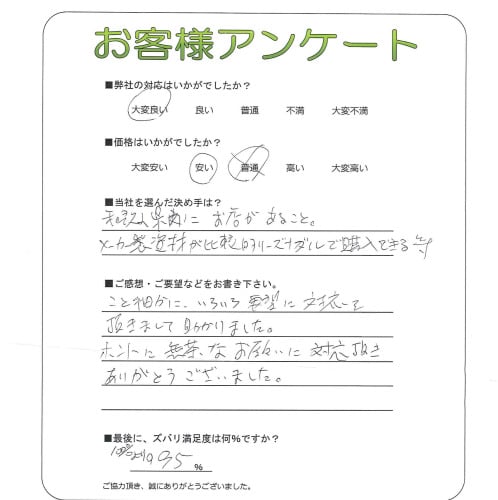 お客様アンケート
■弊社の対応はいかがでしたか?
大変良い 良い 普通 不満 大変不満
■価格はいかがでしたか?
大変安い 安い 普通 高い 大変高い
■当社を選んだ決め手は?
県内に お店が あること。
メーカー製資材が比較的リーズナブルで購入できる
■ご感想・ご要望などをお書き下さい。
こと細かに、いろいろ 要望に 対応して
頂きまして 助かりました。
ホントに 無茶、な お願いに 対応 頂き
ありがとう ございました。
■最後に、ズバリ満足度は何%ですか?
95 %
ご協力頂き、誠にありがとうございました。